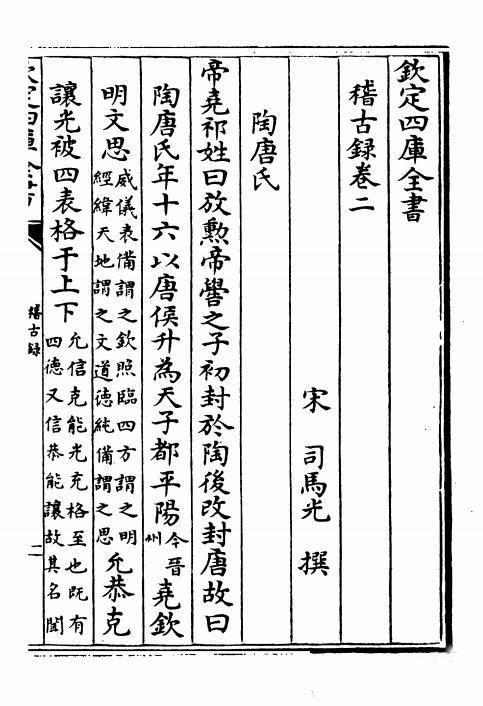 欽定四庫全書
稽古録卷二
宋 司馬光 撰
陶唐氏
帝堯祁姓曰放勲帝嚳之子初封於陶後改封唐故曰
陶唐氏年十六以唐侯升為天子都平陽今晋州堯欽
明文思威儀表備謂之欽照臨四方謂之明經緯天地謂之文道徳純備謂之思允恭克
讓光被四表格于上下允信克能光充格至也既有四徳又信恭能讓故其名聞
欽定四庫全書
稽古録
二